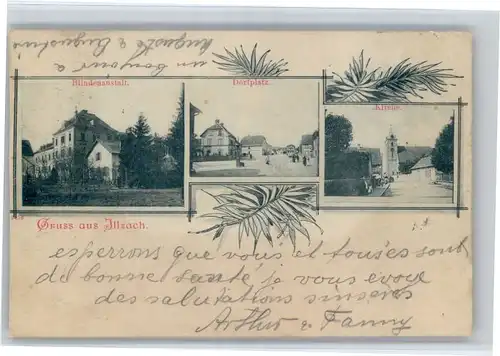 un bonjour a Auguste & Augustine
Blindenanstalt.
Dorfplatz.
Kirche.
Gruss aus Illzach.
esperrons que vous et touses sont
de bonne santé je vous evoie
des salutations sinsères
Arthur & Fanny